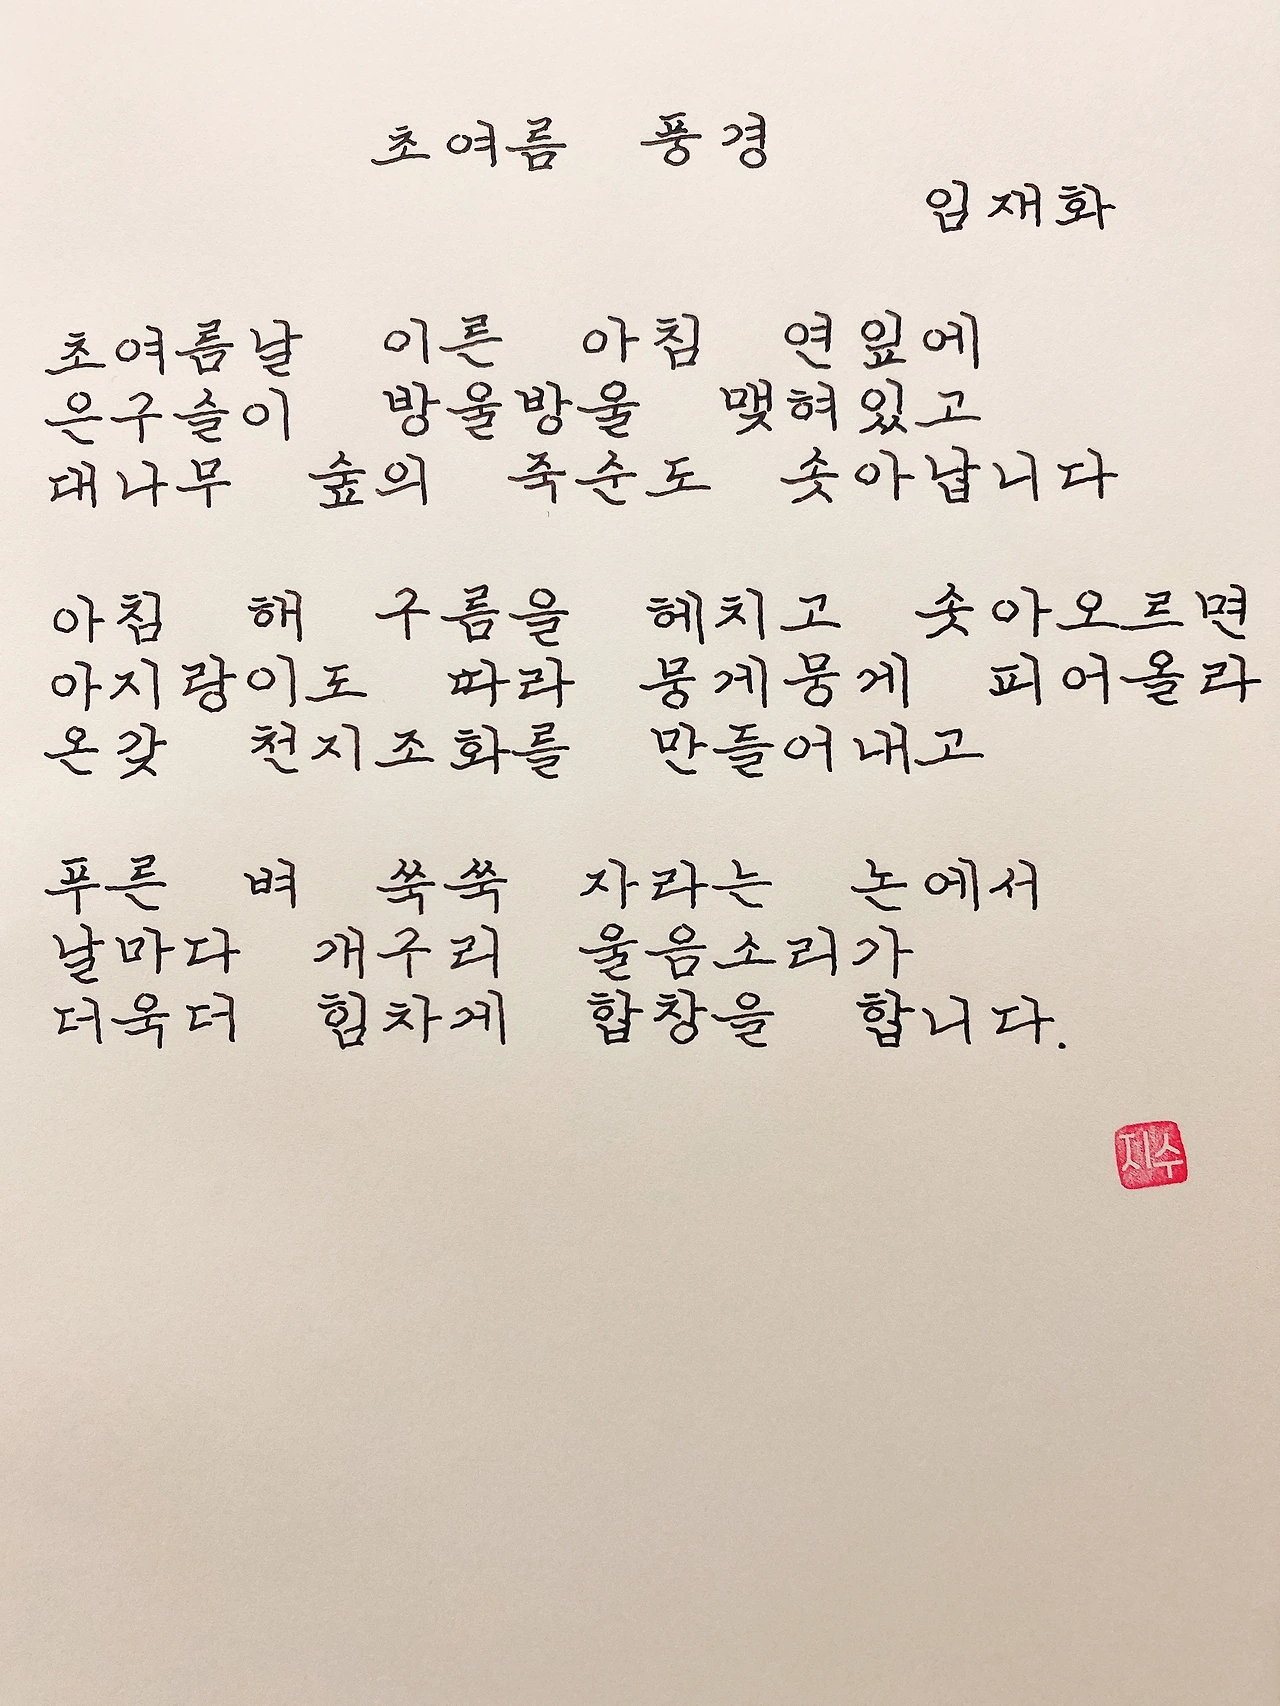 초여름 풍경
임재화
초여름날 이른 아침 연잎에
은구슬이 방울방울 맺혀있고
대나무 숲의 죽순도 솟아납니다
아침 해 구름을 헤치고 솟아오르면
아지랑이도 따라 뭉게뭉게 피어올라
온갖 천지조화를 만들어내고
푸른 벼 쑥쑥 자라는 논에서
날마다 개구리 울음소리가
더욱더 힘차게 합창을 합니다.
지수